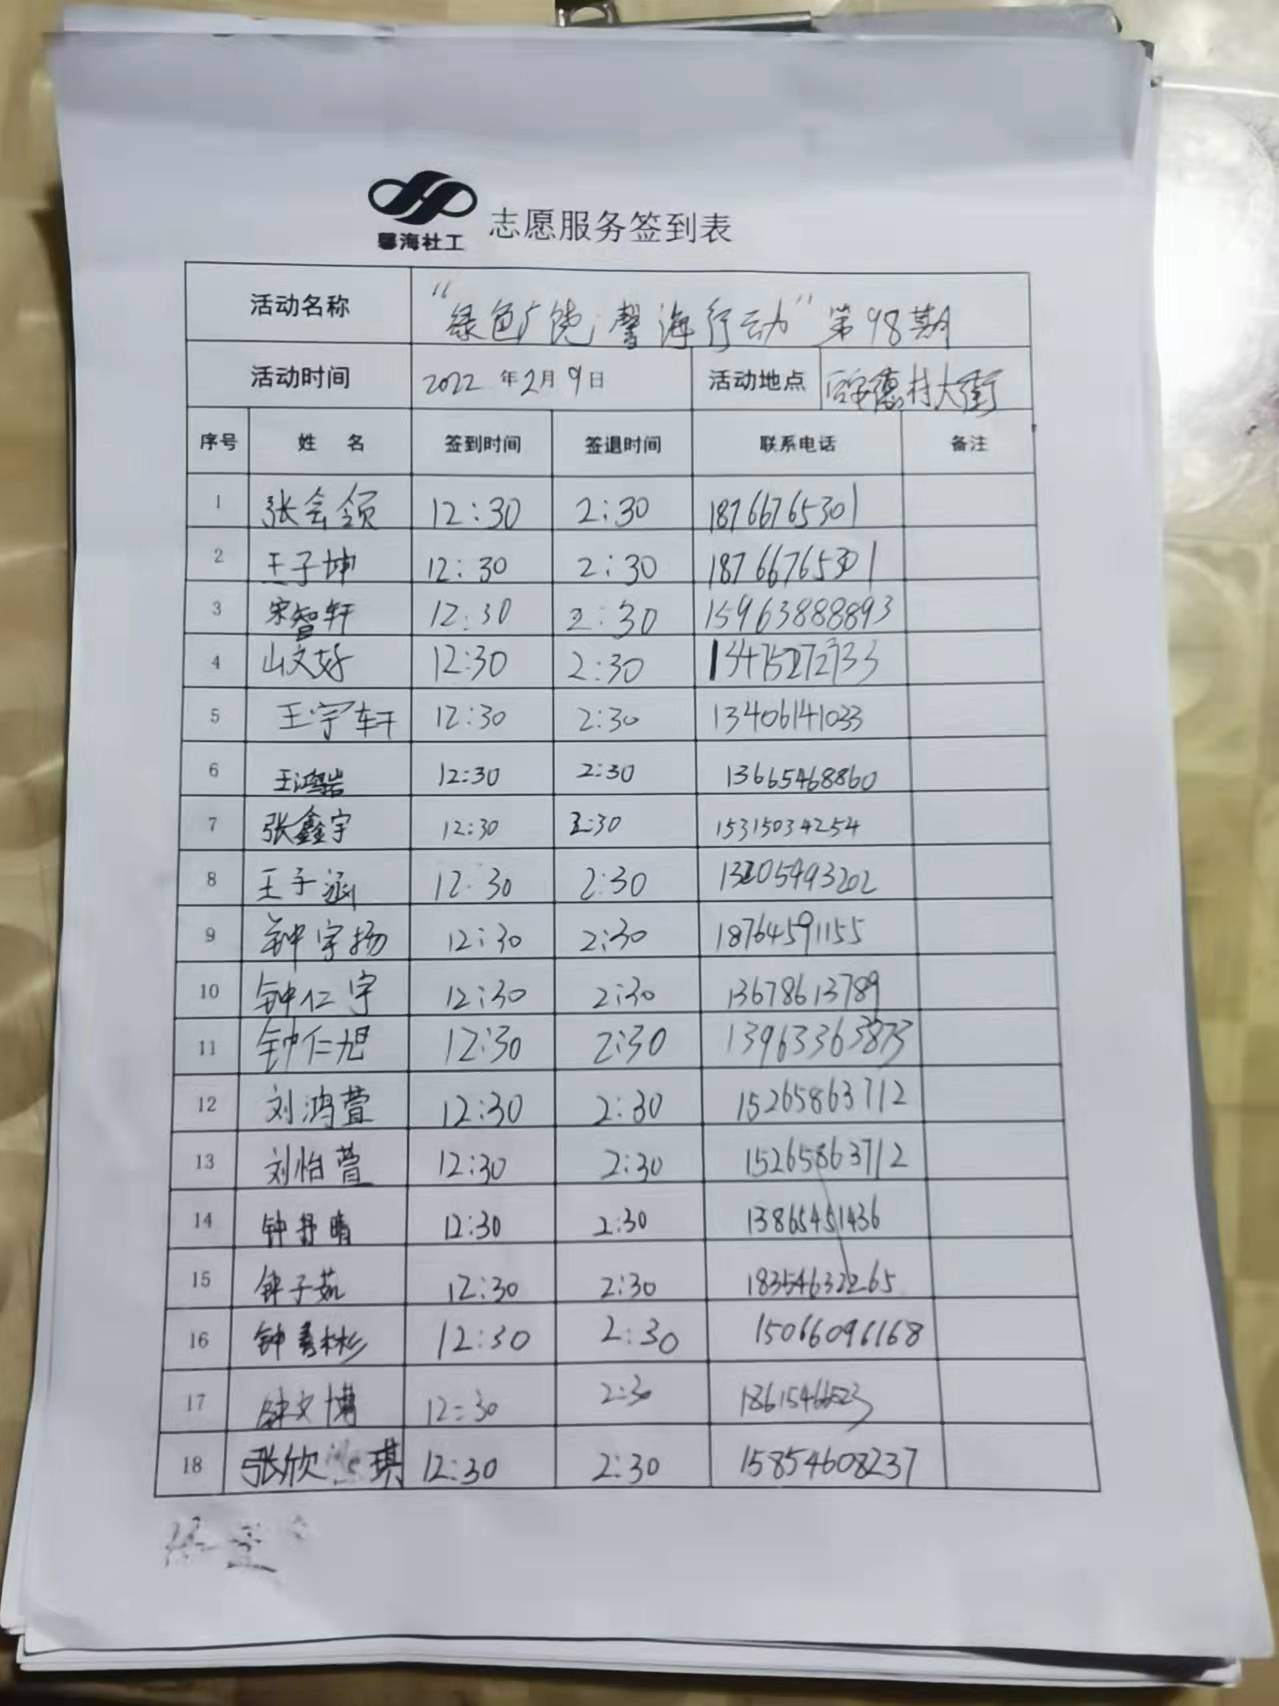 馨海社工 志愿服务签到表
活动名称 "绿色广饶 馨海行动"第98期
活动时间 2022年2月9日 活动地点 村大街
序号 姓 名 签到时间 签退时间 联系电话 备注
1 张会领 12:30 2:30 18766765301
2 王子坤 12:30 2:30 18766765301
3 宋智轩 12:30 2:30 15963888893
4 山文好 12:30 2:30 13475272733
5 王宇轩 12:30 2:30 13406141033
6 王鸿岩 12:30 2:30 13665468860
7 张鑫宇 12:30 2:30 15315034254
8 王子涵 12:30 2:30
9 钟宇扬 12:30 2:30 18764591155
10 钟仁宇 12:30 2:30 13678613789
11 钟仁旭 12:30 2:30 13963363873
12 刘鸿萱 12:30 2:30 15265863712
13 刘怡萱 12:30 2:30 15265863712
14 钟舒晴 12:30 2:30 13865451436
15 钟子茹 12:30 2:30 18354632265
16 钟 彬 12:30 2:30 15066096168
17 钟文博 12:30 2:30
18 张欣琪 12:30 2:30 15854608237